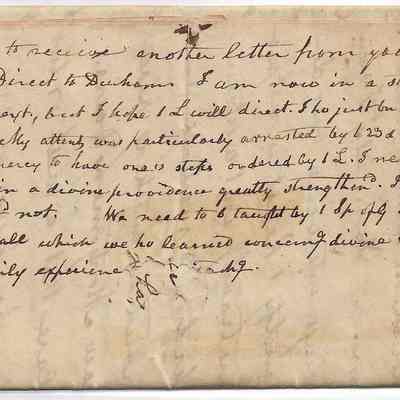 to receive another letter from you
Direct to Durham. I am now in a st
ext, but I hope ye L will direct. I ha just be
My attentn was particularly arrested by ye 23d
mercy to have one's steps ordered by ye L. I ne
in a divine providence greatly strengthend. I
d not. We need to b taught by ye Sp of G
all which we ha learned concerng divine
ily experience. Teachg.